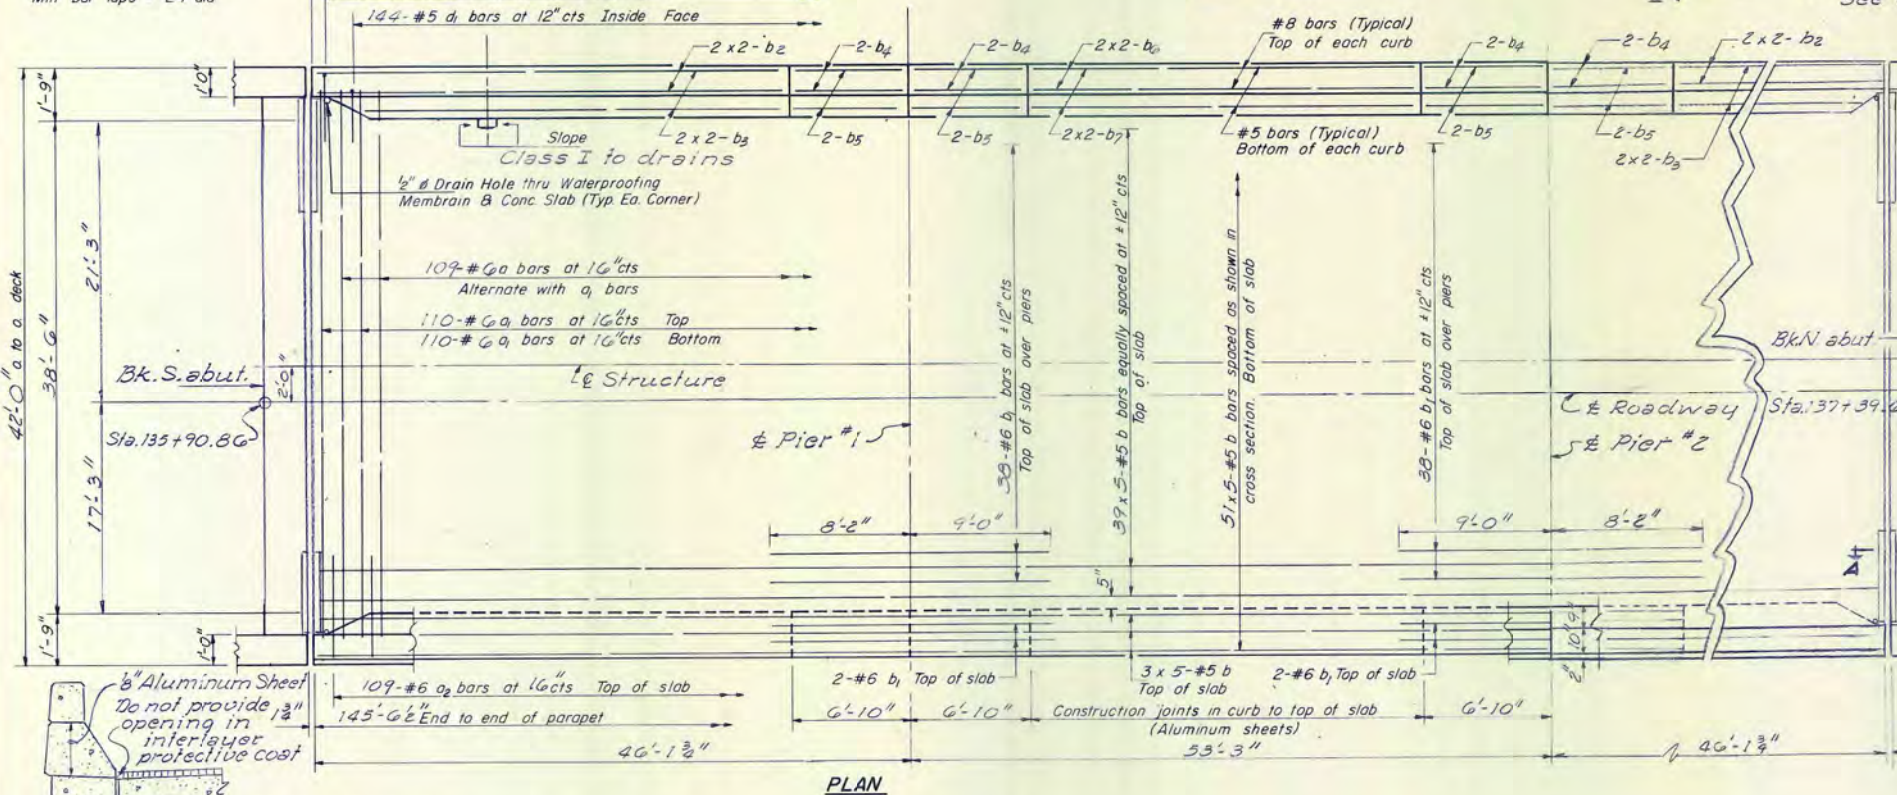 144-#5 d₁ bars at 12"cts Inside Face
#8 bars (Typical)
Top of each curb
2 x 2-b₂
2-b₄
2-b₄
2x2-b₆
2-b₄
2-b₄
2x2-b₂
1'-9"
1'0"
2 x 2-b₃
2-b₅
2-b₅
2x2-b₇
#5 bars (Typical)
Bottom of each curb
2-b₅
2-b₅
2x2-b₃
Slope
Class I to drains
½" ø Drain Hole thru Waterproofing
Membrain & Conc. Slab (Typ. Ea. Corner)
42'-0" o. to o. deck
38'-6"
21'-3"
17'-3"
109-#6 a bars at 16"cts
Alternate with a₁ bars
110-#6 a₁ bars at 16"cts Top
110-#6 a₁ bars at 16"cts Bottom
38-#6 b₁ bars at ±12"cts
Top of slab over piers
39x5-#5 b bars equally spaced at ±12"cts
Top of slab
51x5-#5 b bars spaced as shown in
cross section. Bottom of slab
38-#6 b₁ bars at ±12"cts
Top of slab over piers
Bk. S. abut.
2'-0"
℄ Structure
Bk.N abut
Sta.135+90.86
℄ Pier #1
℄ Roadway
Sta.137+39.
℄ Pier #2
8'-2"
9'-0"
9'-0"
8'-2"
5"
1'-9"
1'-0"
9"
10"
2"
⅛" Aluminum Sheet
Do not provide
opening in
interlayer
protective coat
1¾"
109-#6 a₂ bars at 16"cts Top of slab
2-#6 b₁ Top of slab
3 x 5-#5 b
Top of slab
2-#6 b₁ Top of slab
145'-6½" End to end of parapet
6'-10"
6'-10"
Construction joints in curb to top of slab
(Aluminum sheets)
6'-10"
46'-1¾"
53'-3"
46'-1¾"
PLAN